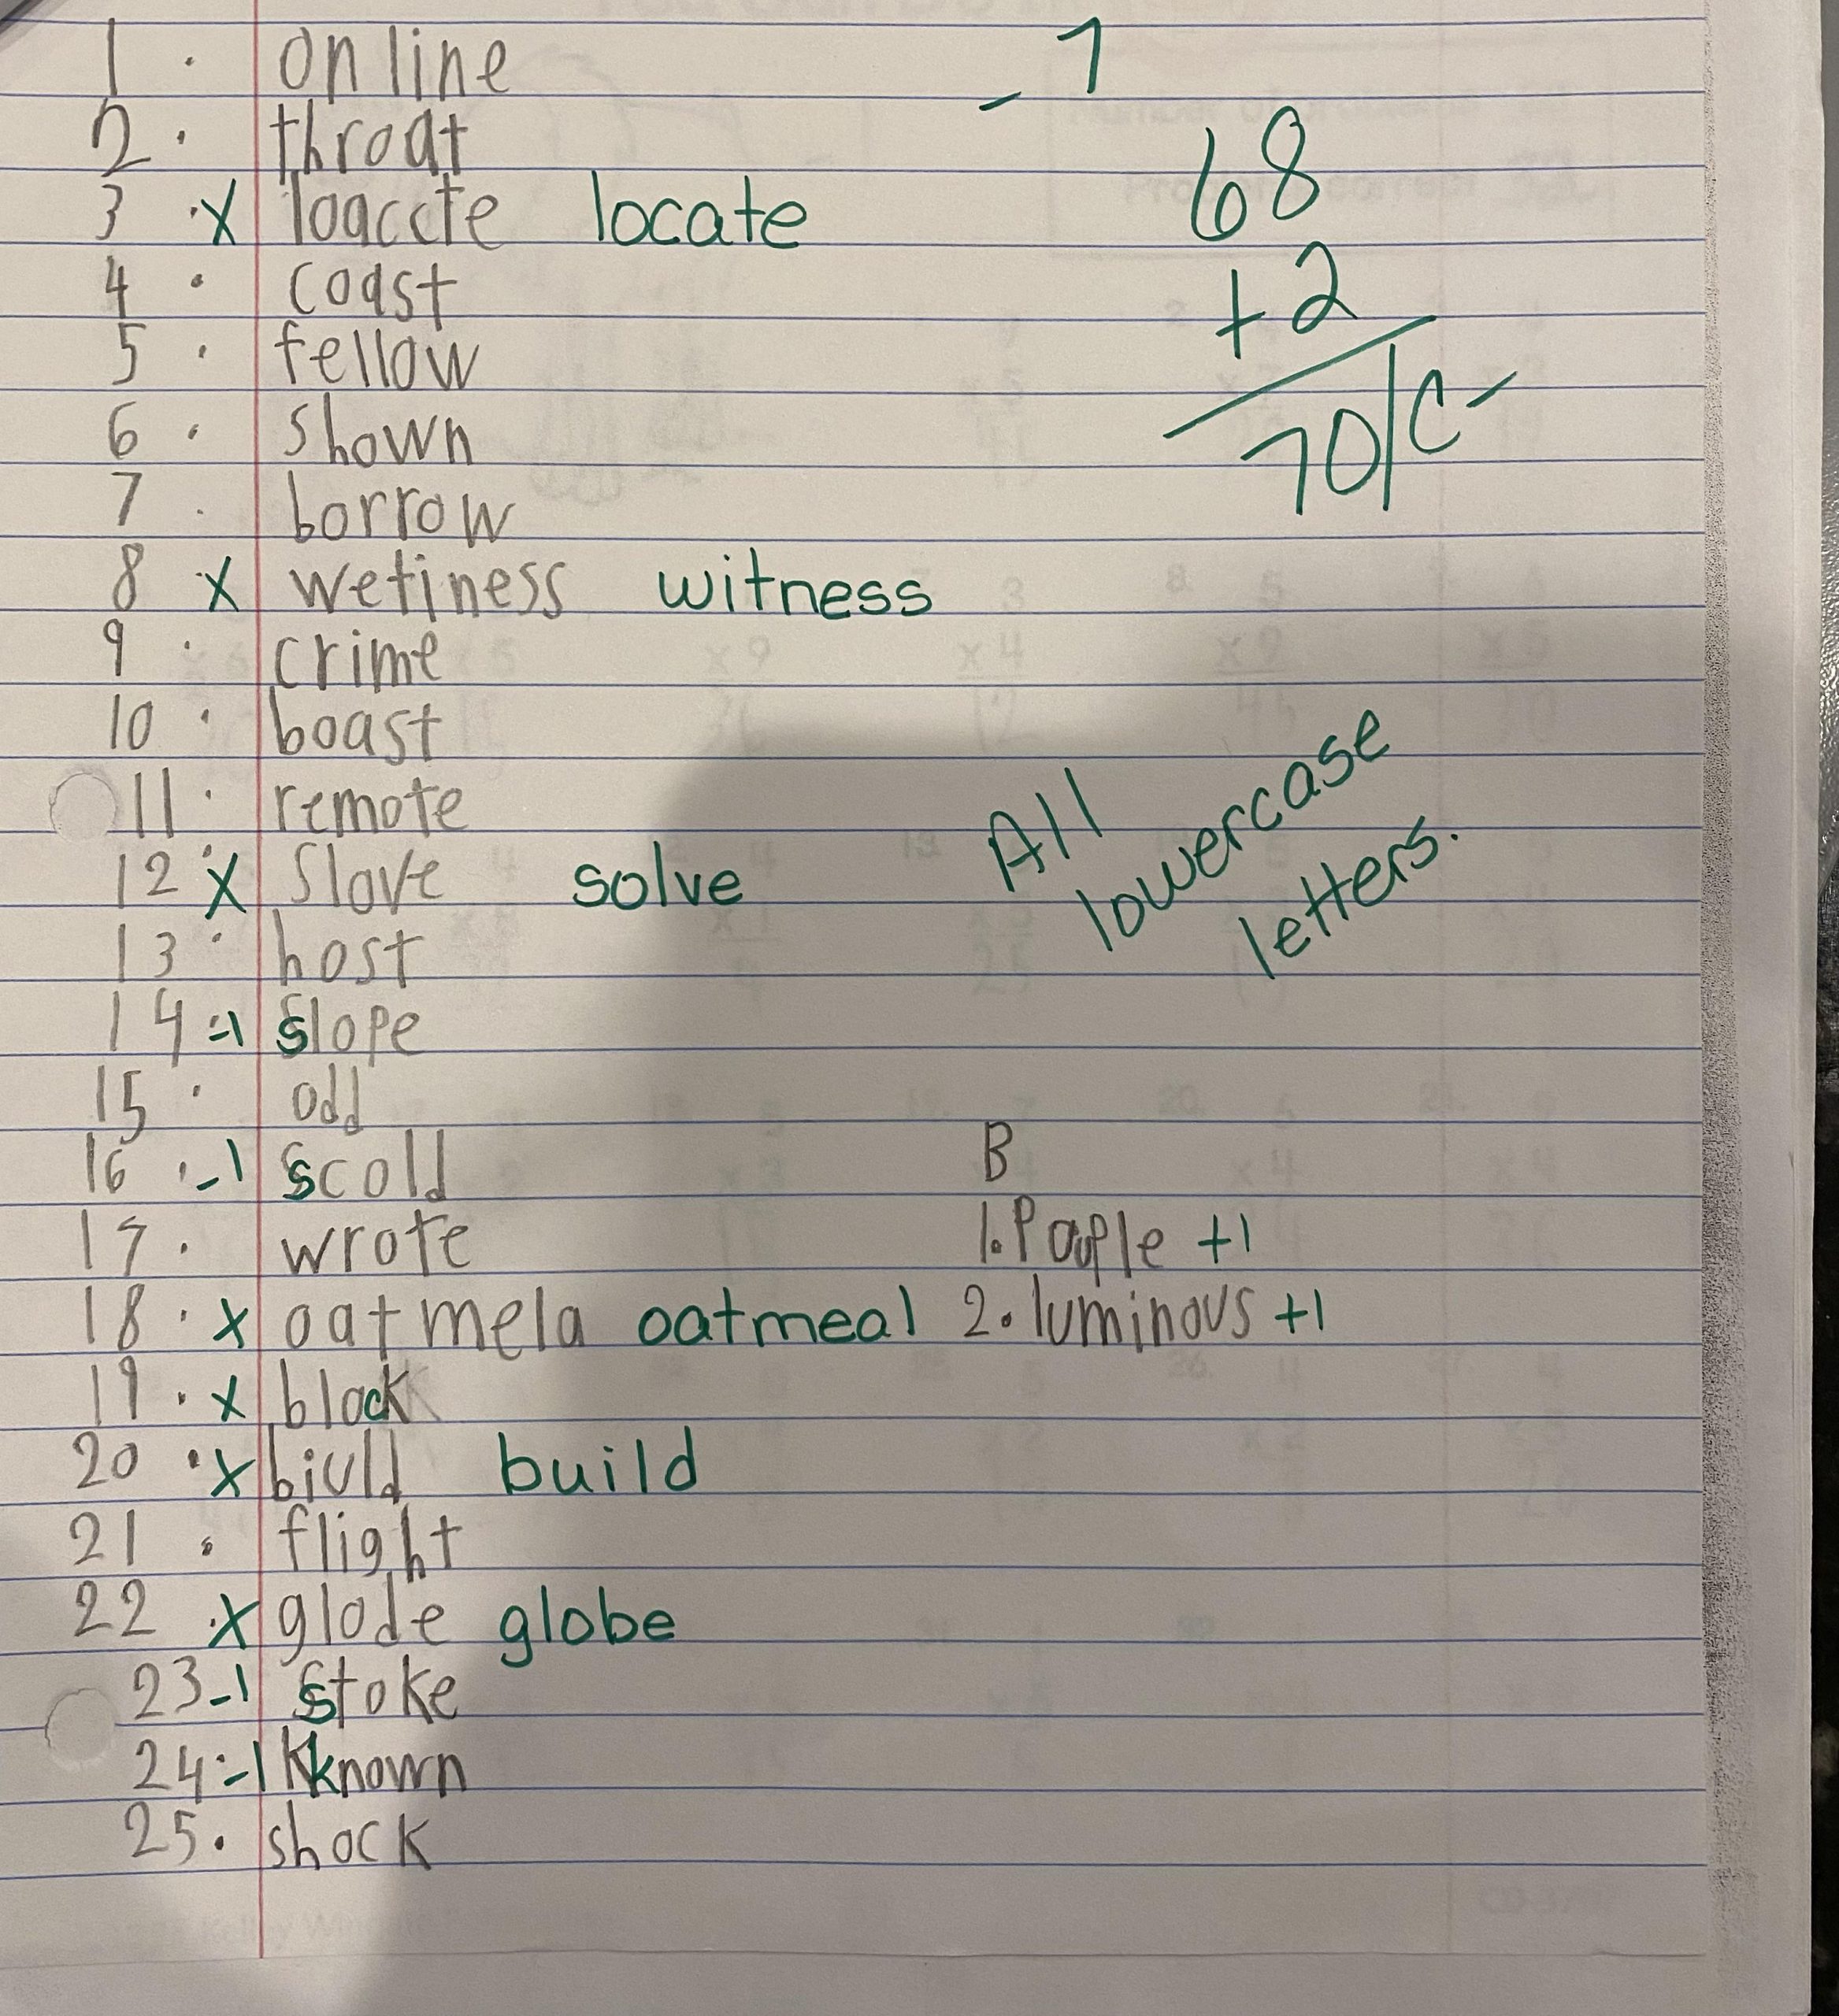 1. online
2. throat
3. x loaccte locate
4. coast
5. fellow
6. shown
7. borrow
8 x wetiness witness
9. crime
10. boast
11. remote
12 x Slove solve
13. host
14. -1 slope
15. odd
16. -1 scold
17. wrote
18. x oatmela oatmeal
19. x block
20. x biuld build
21. flight
22. x glode globe
23 -1 stoke
24. -1 Kknown
25. shock
-7
68
+2
70/C-
All
lowercase
letters.
B
1. +1
2. luminous +1